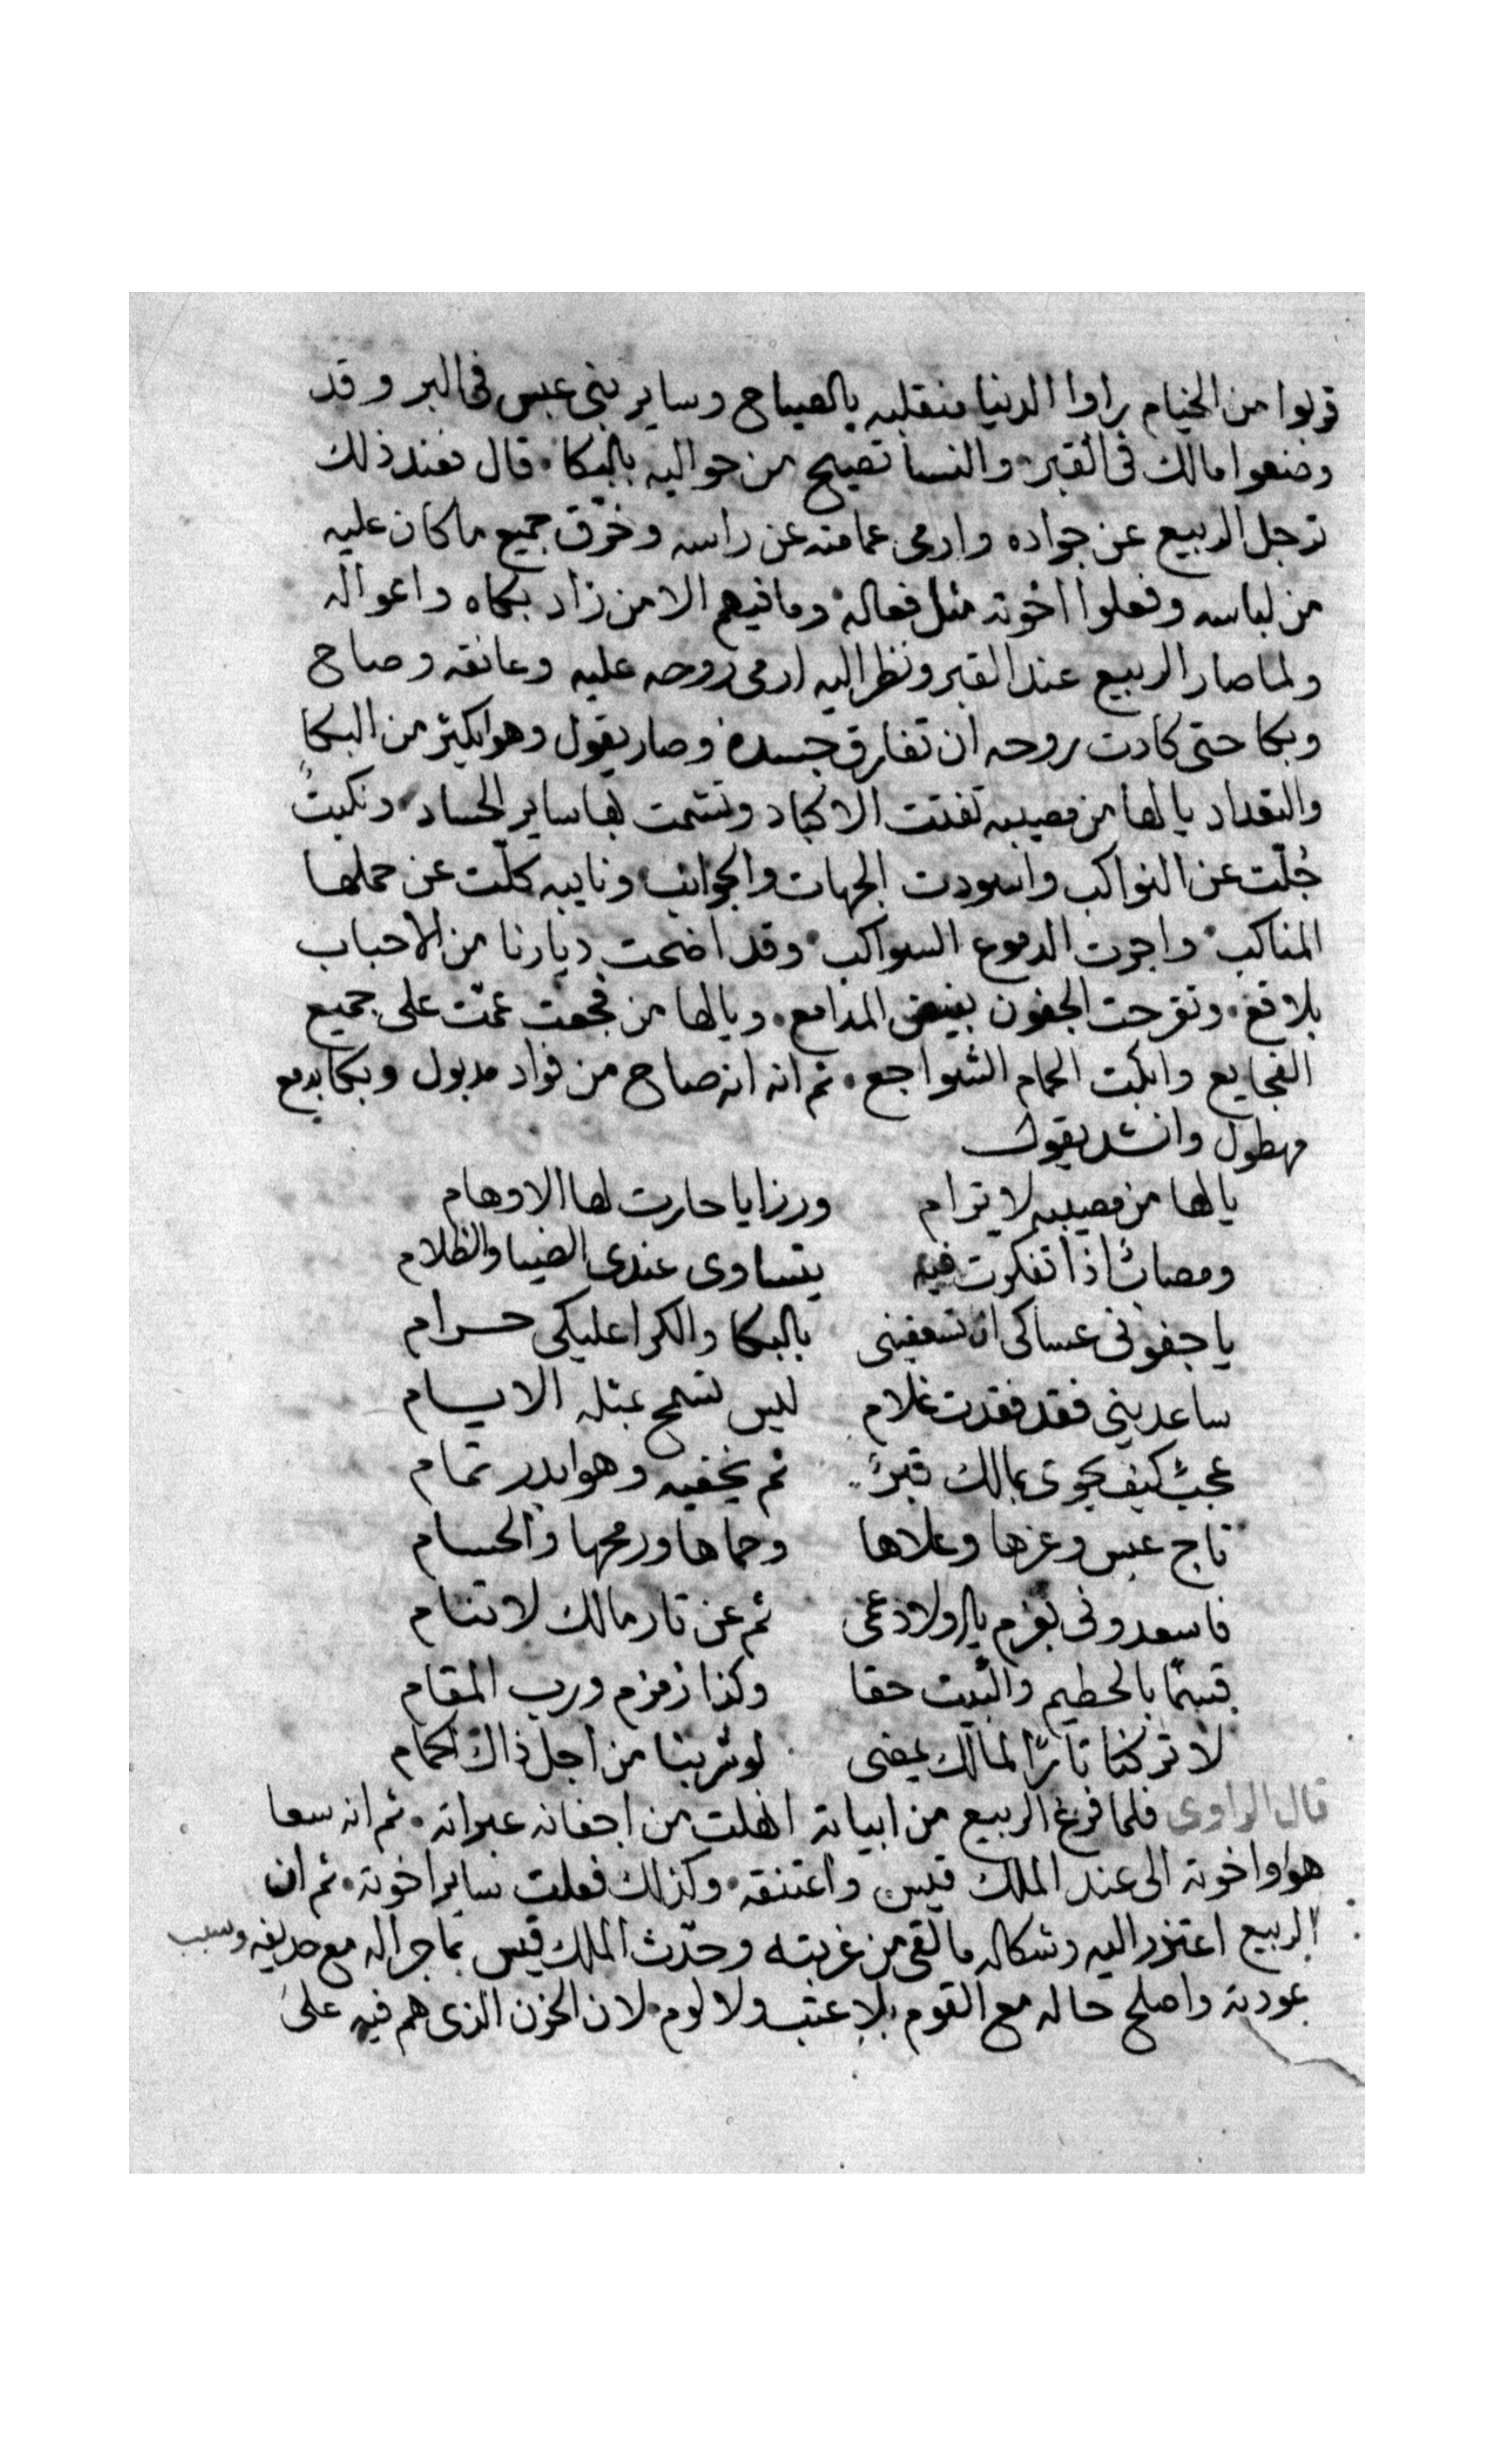 قربوا من الخيام راوا الدنيا منقلبه بالصياح وساير بنى عبس فى البر وقد
وضعوا مالك فى القبر والنسا تصيح من حواليه بالبكا. قال فعند ذلك
ترجل الربيع عن جواده وارمى عمامته عن راسه وخرّق جميع ما كان عليه
من لباسه وفعلوا اخوته مثل فعاله وما فيهم الا من زاد بكاه واعواله
ولما صار الربيع عند القبر ونظر اليه ارمى روحه عليه وعانقه وصاح
وبكا حتى كادت روحه ان تفارق جسده وصار يقول وهو يكثر من البكا
والتعداد يا لها من مصيبه تفتت الاكباد وتشمت بها ساير الحساد ونكبتٌ
جُلّت عن النواكب واسودت الجهات والجوانب ونايبه كلّت عن حملها
المناكب واجرت الدموع السواكب وقد اضحت ديارنا من الاحباب
بلاقع. وتقرحت الجفون بفيض المدامع. ويا لها من فجعت عمّت على جميع
الفجايع وابكت الحمام الشواجع. ثم انه انه صاح من فواد مدبول وبكا بدمع
مهطول وانشد يقول
يا لها من مصيبه لا ترام ورزايا حارت لها الاوهام
ومصابٌ اذا تفكرت فيه يتساوى عندى الضيا والظلام
يا جفونى عساكى ان تسعفينى بالبكا والكرا عليكى حرام
ساعدينى فقد فقدت غلام ليس تسمح بمثله الايام
عجبٌ كيف يحوى بمالك قبرٌ ثم يخفيه وهو بدر تمام
تاج عبس وعزها وعلاها وحماها ورمحها والحسام
فاسعدونى بعزم يال ولاد عمى ثم عن تار مالك لا تنام
قسمًا بالحطيم والبيت حقا وكذا زمزم ورب المقام
لا تركنا تارًا لمالك يمضى لو شربنا من اجل ذاك الحمام
قال الراوى فلما فرغ الربيع من ابياته انهلت من اجفانه عبراته. ثم انه سعا
هو واخوته الى عند الملك قيس واعتنقه. وكذلك فعلت ساير اخوته. ثم ان
الربيع اعتذر اليه وشكا له ما لقى من غربته وحدّث الملك قيس بما جرا له مع حديفه وسبب
عودته واصلح حاله مع القوم بلا عتب ولا لوم لان الحزن الذى هم فيه على